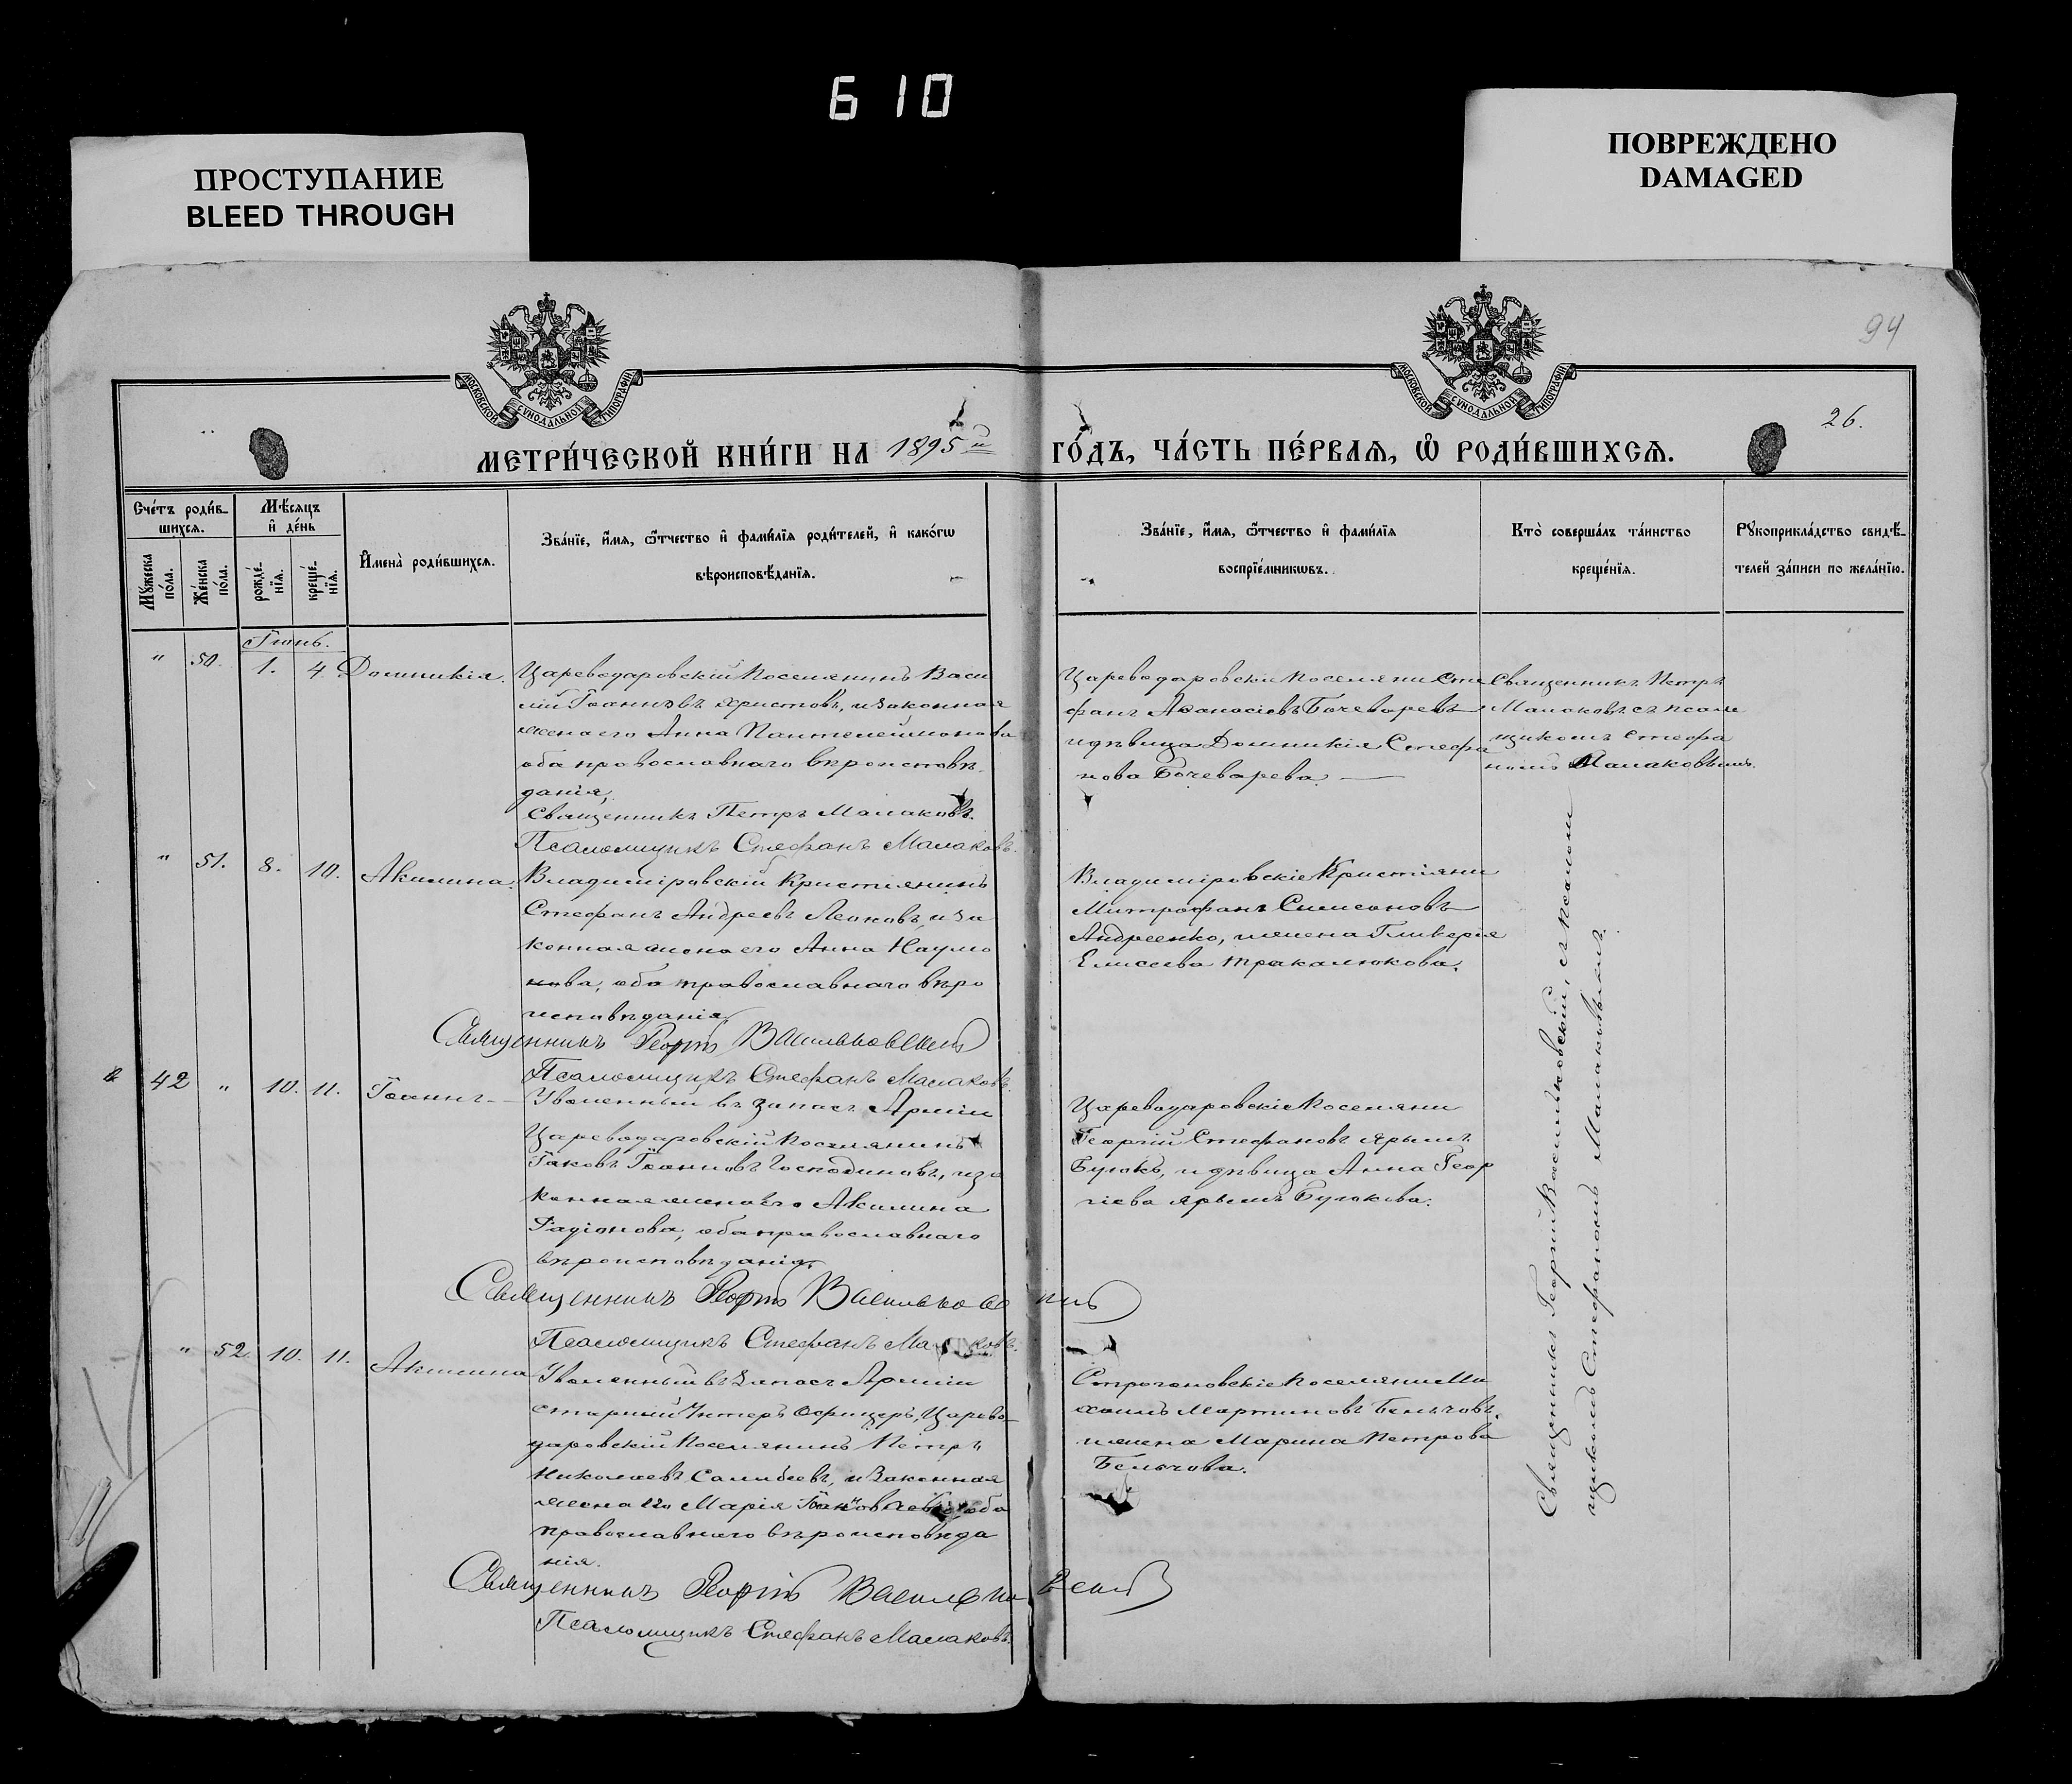 610
ПРОСТУПАНИЕ
BLEED THROUGH
ПОВРЕЖДЕНО
DAMAGED
94
МОСКОВСКОЙ СѴНОДАЛЬНОЙ ТИПОГРАФІИ
МОСКОВСКОЙ СѴНОДАЛЬНОЙ ТИПОГРАФІИ
26.
МЕТРИ́ЧЕСКОЙ КНИ́ГИ НА 1895й ГО́ДЪ, ЧА́СТЬ ПЕ́РВАѦ, Ѡ҆ РОДИ́ВШИХСѦ.
Сче́тъ роди́в-
шихсѧ.
Мꙋ́жеска
по́ла.
Же́нска
по́ла.
Мѣ́сѧцъ
и҆ де́нь
рожде́-
нїѧ.
креще́-
нїѧ.
И҆мена̀ роди́вшихсѧ.
Зва́нїе, и҆́мѧ, ѻ҆́тчество и҆ фамѵ́лїѧ роди́телей, и҆ како́гѡ
вѣроисповѣ́данїѧ.
Зва́нїе, и҆́мѧ, ѻ҆́тчество и҆ фамѵ́лїѧ
воспрїе́мникѡвъ.
Кто̀ соверша́лъ та́инство
креще́нїѧ.
Рꙋкоприкла́дство свидѣ́-
телей за́писи по жела́нїю.
Іюнь.
" 50. 1. 4. Домникія.
Цареводаровскій Поселянинъ Васи
лій Іоанновъ Христовъ, и законная
жена его Анна Пантелеймонова
оба православнаго вѣроисповѣ
данія,
Священникъ Петръ Малаковъ.
Псаломщикъ Стефанъ Малаковъ.
Цареводаровскіе Поселяни Сте
фанъ Афанасіевъ Бочеваревъ
и дѣвица Домникія Стефа
нова Бочеварева.
Священникъ Петръ
Малаковъ съ псалом
щикомъ Стефа
номъ Малаковымъ.
" 51. 8. 10. Акилина.
Владиміровскій Кристіянинъ
Стефанъ Андреевъ Леоновъ, и за
конная жена его Анна Наумо
ва, оба православнаго вѣро
исповѣданія
Священникъ Георгій Васильковскій
Псаломщикъ Стефанъ Малаковъ.
Владиміровскіе Кристіяни
Митрофанъ Симеоновъ
Андреенко, и жена Гликерія
Елисеева Тракалюкова.
42 " 10. 11. Іоаннъ
Уволенный въ запасъ Арміи
Цареводаровскій Поселянинъ
Іаковъ Іоанновъ Господиновъ, и за
конная жена его Акилина
Радіонова, оба православнаго
вѣроисповѣданія.
Священникъ Георгій Васильковскій
Псаломщикъ Стефанъ Малаковъ.
Цареводаровскіе Поселяни
Георгій Стефановъ Ярымъ
Буюкъ, и дѣвица Анна Геор
гіева Ярымъ Буюкова.
" 52. 10. 11. Акилина
Уволенный въ Запасъ Арміи
старшій Унтеръ Офицеръ, Царево
даровскій Поселянинъ Петръ
Николаевъ и Законная
жена его Марія оба
православнаго вѣроисповѣда
нія.
Священникъ Георгій Васильковскій
Псаломщикъ Стефанъ Малаковъ.
Строгоновскіе Поселяни Ми
хаилъ Мартиновъ Бельчовъ,
и жена Марина Петрова
Бельчова.
Священникъ Георгій Васильковскій, съ псалом
щикомъ Стефаномъ Малаковымъ.